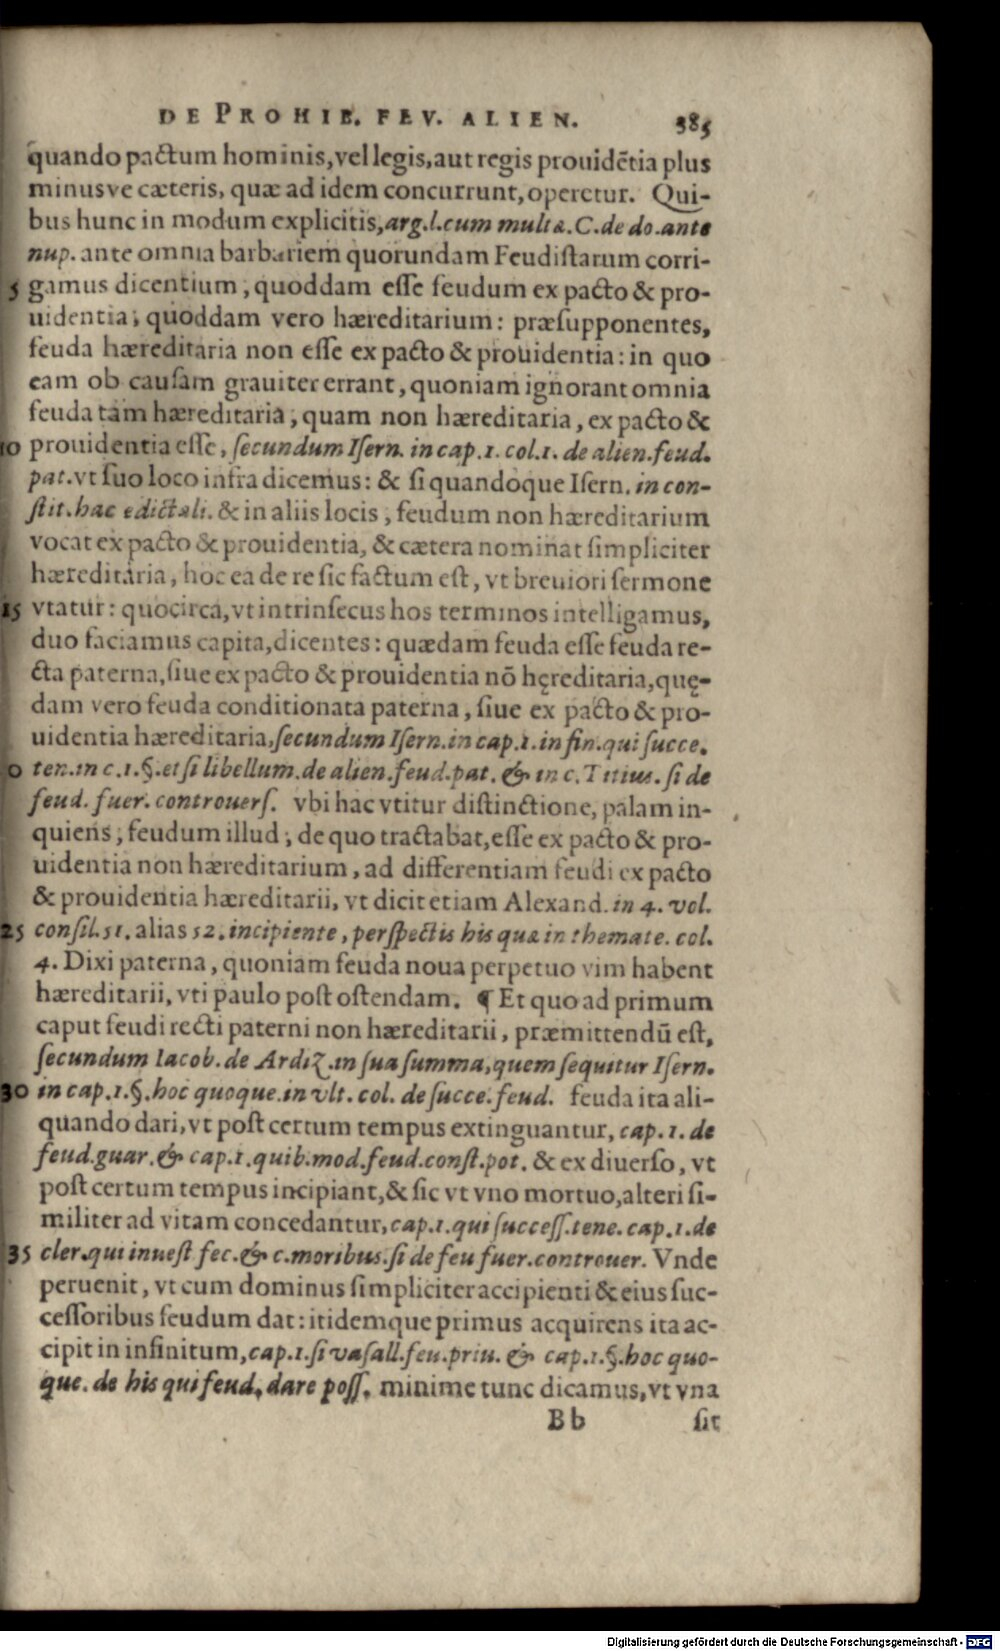 DE PROHIB. FEV. ALIEN. 385
quando pactum hominis, vel legis, aut regis prouidẽtia plus
minusve cæteris, quæ ad idem concurrunt, operetur. Qui-
bus hunc in modum explicitis, arg. l. cum multæ. C. de do. ante
nup. ante omnia barbariem quorundam Feudiſtarum corri-
5 gamus dicentium, quoddam eſſe feudum ex pacto & pro-
uidentia, quoddam vero hæreditarium: præſupponentes,
feuda hæreditaria non eſſe ex pacto & prouidentia: in quo
eam ob cauſam grauiter errant, quoniam ignorant omnia
feuda tàm hæreditaria, quam non hæreditaria, ex pacto &
10 prouidentia eſſe, ſecundum Iſern. in cap. 1. col. 1. de alien. feud.
pat. vt ſuo loco infra dicemus: & ſi quandoque Iſern. in con-
ſtit. hac edictali. & in aliis locis, feudum non hæreditarium
vocat ex pacto & prouidentia, & cætera nominat ſimpliciter
hæreditaria, hoc ea de re ſic factum eſt, vt breuiori ſermone
15 vtatur: quocirca, vt intrinſecus hos terminos intelligamus,
duo faciamus capita, dicentes: quædam feuda eſſe feuda re-
cta paterna, ſiue ex pacto & prouidentia nõ hęreditaria, quę-
dam vero feuda conditionata paterna, ſiue ex pacto & pro-
uidentia hæreditaria, ſecundum Iſern. in cap. 1. in fin. qui ſucce.
0 ten. in c. 1. §. et ſi libellum. de alien. feud. pat. & in c. Titius. ſi de
feud. fuer. controuerſ. vbi hac vtitur diſtinctione, palam in-
quiens, feudum illud, de quo tractabat, eſſe ex pacto & pro-
uidentia non hæreditarium, ad differentiam feudi ex pacto
& prouidentia hæreditarii, vt dicit etiam Alexand. in 4. vol.
25 conſil. 51. alias 52. incipiente, perſpectis his quæ in themate. col.
4. Dixi paterna, quoniam feuda noua perpetuo vim habent
hæreditarii, vti paulo poſt oſtendam. ¶ Et quo ad primum
caput feudi recti paterni non hæreditarii, præmittendũ eſt,
ſecundum Iacob. de Ardiz. in ſua ſumma, quem ſequitur Iſern.
30 in cap. 1. §. hoc quoque. in vlt. col. de ſucce. feud. feuda ita ali-
quando dari, vt poſt certum tempus extinguantur, cap. 1. de
feud. guar. & cap. 1. quib. mod. feud. conſt. pot. & ex diuerſo, vt
poſt certum tempus incipiant, & ſic vt vno mortuo, alteri ſi-
militer ad vitam concedantur, cap. 1. qui ſucceſſ. tene. cap. 1. de
35 cler. qui inueſt fec. & c. moribus. ſi de feu fuer. controuer. Vnde
peruenit, vt cum dominus ſimpliciter accipienti & eius ſuc-
ceſſoribus feudum dat: itidemque primus acquirens ita ac-
cipit in infinitum, cap. 1. ſi vaſall. feu. priu. & cap. 1. §. hoc quo-
que. de his qui feud. dare poſſ. minime tunc dicamus, vt vna
Bb ſit
Digitalisierung gefördert durch die Deutsche Forschungsgemeinschaft - DFG